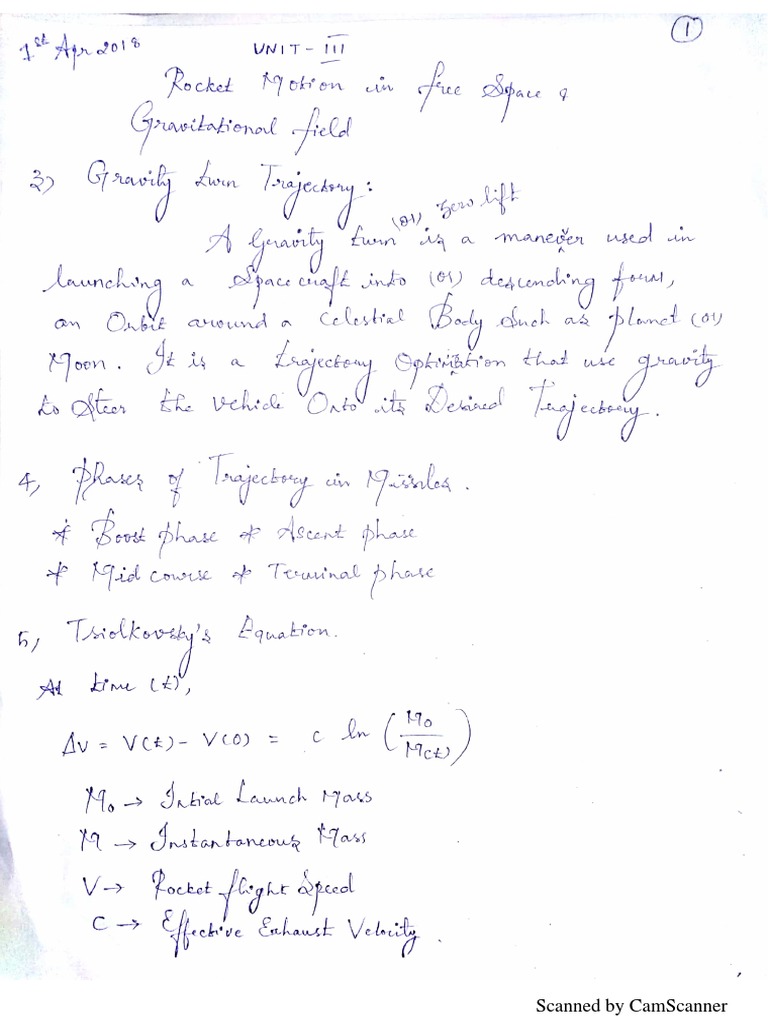 1
1st Apr 2018
UNIT - III
Rocket Motion in free Space &
Gravitational field
3) Gravity turn Trajectory:
(or) Zero lift
A Gravity turn is a manever used in
launching a Spacecraft into (or) descending form,
an Orbit around a Celestial Body Such as planet (or)
Moon. It is a trajectory Optimization that use gravity
to Steer the vehicle Onto its Desired Trajectory.
4, Phases of Trajectory in Missiles.
* Boost phase * Ascent phase
* Mid course * Terminal phase
5, Tsiolkovsky's Equation.
At time (t),
Δv = V(t) - V(0) = c ln (M0/M(t))
M0 → Intial Launch Mass
M → Instantaneous Mass
V → Rocket flight Speed
C → Effective Exhaust Velocity.
Scanned by CamScanner